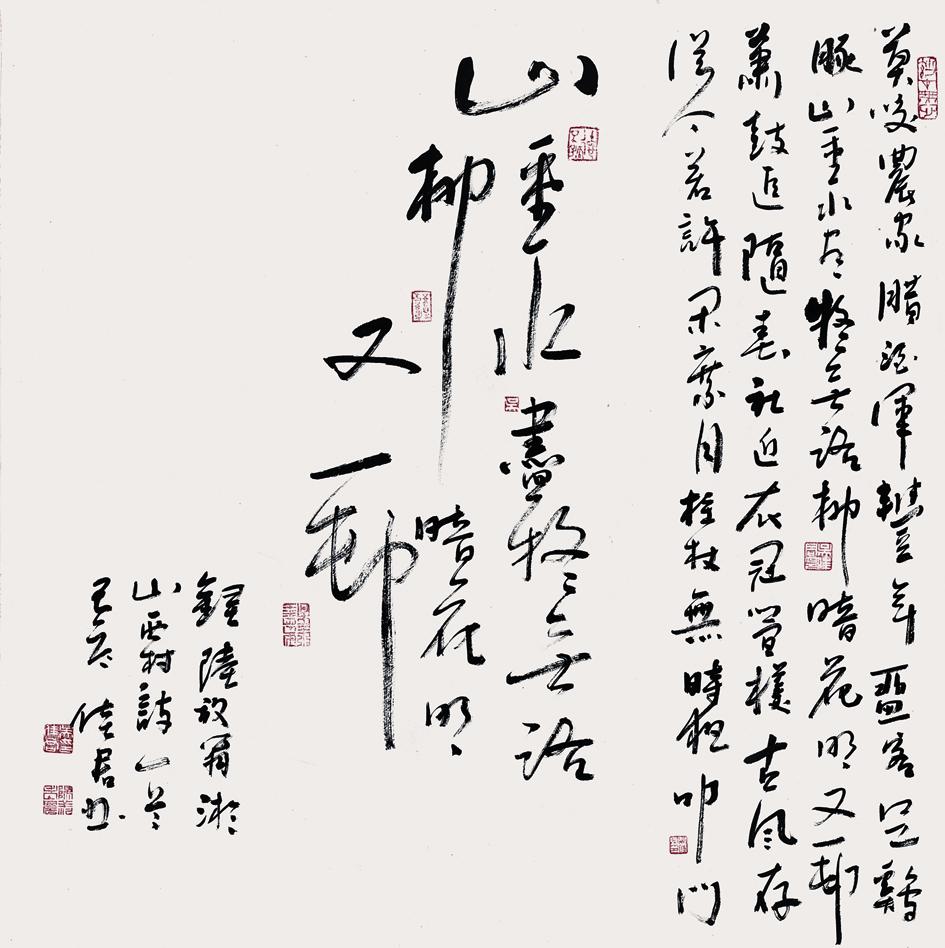 莫咲農家臘酒渾豐年留客足鷄
豚山重水尽疑无路柳暗花明又一邨
蕭鼓追隨春社近衣冠簡樸古風存
従今若許閑乘月拄杖無時夜叩門
山重水盡疑无路
柳暗花明
又一邨
錄陸放翁游
山西村詩一首
君书